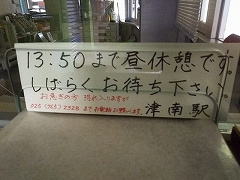 13:50まで昼休憩です。
しばらくお待ち下さい。
お急ぎの方 恐れ入りますが
025(765)2328までお電話お願いします。
津南駅